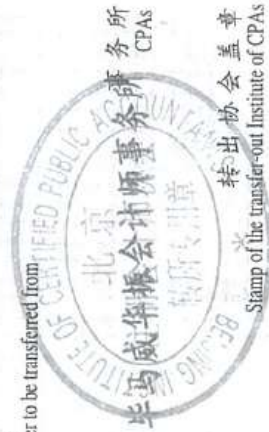 er to be transferred from
毕马威华振会计师事务所
事务所
CPAs
BEIJING INSTITUTE OF CERTIFIED PUBLIC ACCOUNTANTS
北京
转所专用章
转出协会盖章
Stamp of the transfer-out Institute of CPAs